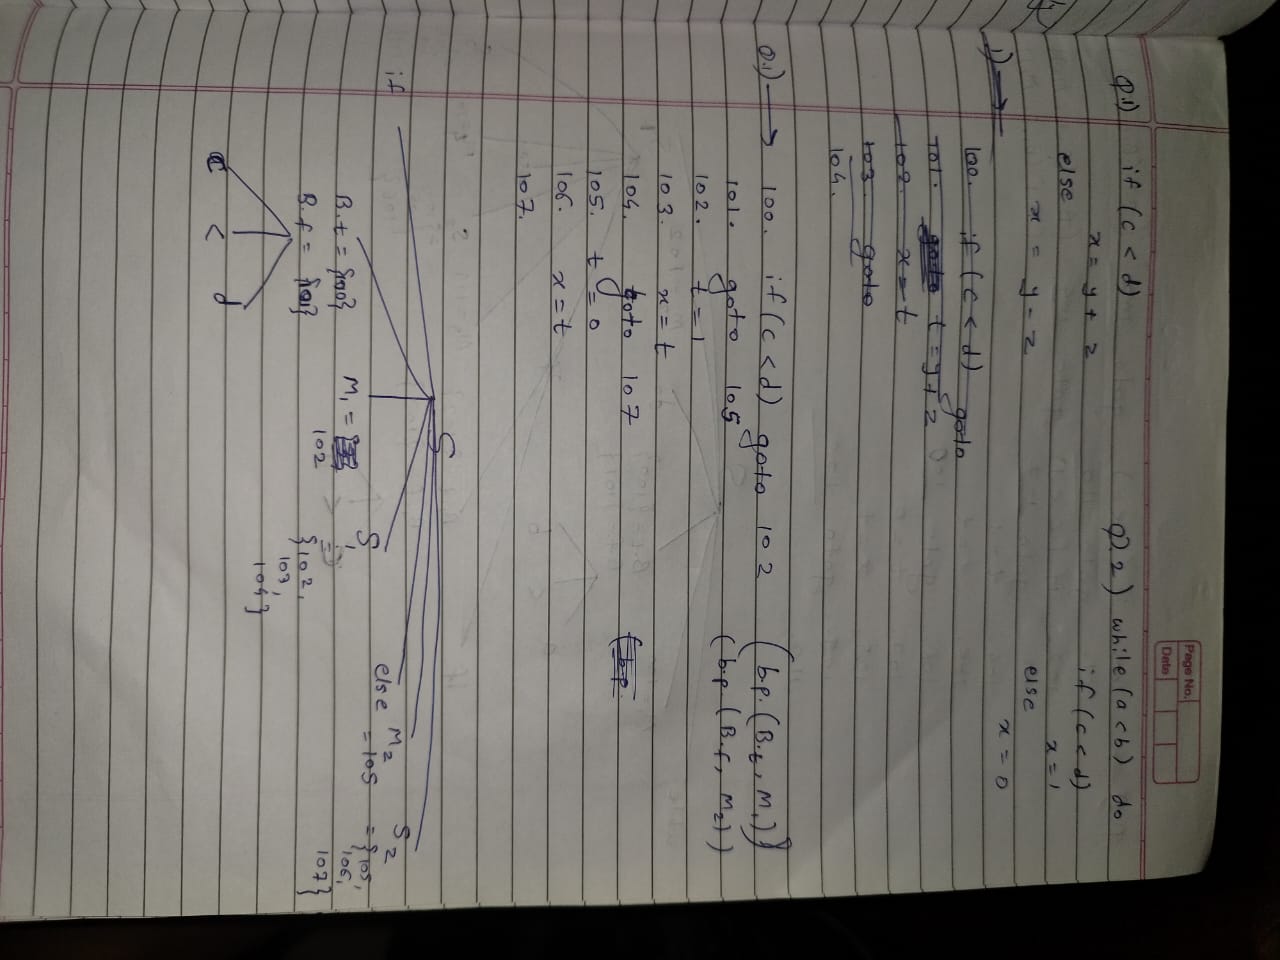 Page No.
Date
Q.1) if (c < d)
x = y + z
else
x = y - z
Q.2) while (a < b) do
if (c < d)
x = 1
else
x = 0
1) →
100. if (c < d) goto
101. goto t = y + z
102. x = t
103. goto
104.
Q.1) → 100. if (c < d) goto 102 (b.p. (B.t, M1))
101. goto 105 (b.p. (B.f, M2))
102. t = 1
103. x = t
104. goto 107 (b.p.
105. t = 0
106. x = t
107.
S
if
B.t = {100}
B.f = {101}
c < d
M1 =
102
S1
=
{102,
103,
104}
else
M2
= 105
S2
= {105,
106,
107}